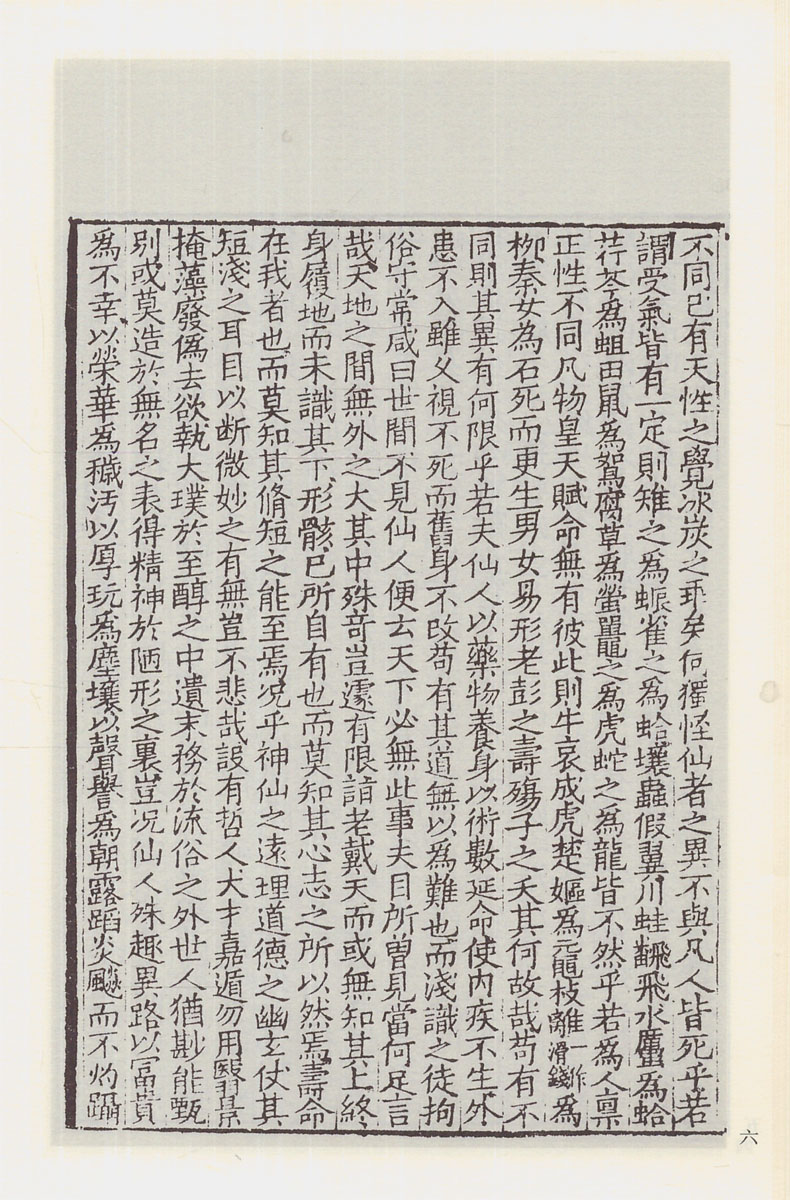 不同已有天性之覺冰炭之乖矣何獨怪仙者之異不與凡人皆死乎若
謂受氣皆有一定則雉之為蜃雀之為蛤壤蟲假翼川蛙翻飛水蠆為蛤
荇苓為蛆田鼠為鴽腐草為螢鼉之為虎蛇之為龍皆不然乎若為人稟
正性不同凡物皇天賦命無有彼此則牛哀成虎楚嫗為黿枝離一作滑錢為
柳秦女為石死而更生男女易形老彭之壽殤子之夭其何故哉苟有不
同則其異有何限乎若夫仙人以藥物養身以術數延命使內疾不生外
患不入雖久視不死而舊身不改苟有其道無以為難也而淺識之徒拘
俗守常咸曰世間不見仙人便云天下必無此事夫目所曾見當何足言
哉天地之間無外之大其中殊奇豈遽有限詣老戴天而或無知其上終
身履地而未識其下形骸已所自有也而莫知其心志之所以然焉壽命
在我者也而莫知其脩短之能至焉况乎神仙之遠理道德之幽玄仗其
短淺之耳目以断微妙之有無豈不悲哉設有哲人大才嘉遁勿用翳景
掩藻廢偽去欲執大璞於至醇之中遺末務於流俗之外世人猶尠能甄
別或莫造於無名之表得精神於陋形之裏豈况仙人殊趣異路以富貴
為不幸以榮華為穢汚以厚玩為塵壤以聲譽為朝露蹈炎飈而不灼躡
六